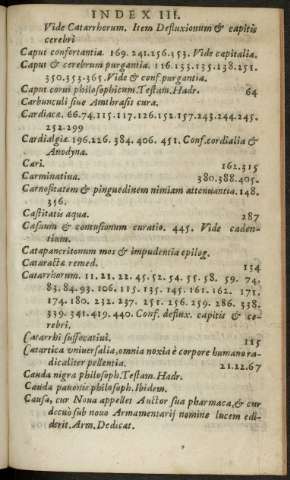 INDEX III.
Vide Catarrhorum. Item Defluxionum & capitis
cerebri
Caput confortantia. 169.241.256.153. Vide capitalia.
Caput & cerebrum purgantia. 116.133.135.138.251.
350.353.365. Vide & conf. purgantia.
Caput corui philosophicum. Testam. Hadr. 64
Carbunculi siue Anthrasis cura.
Cardiacæ. 66.74.115.117.126.152.157.243.244.245.
252.299
Cardialgiæ 196.226.384.406.451. Conf. cordialia &
Anodyna.
Cari. 162.315
Carminatiua. 380.388.405.
Carnositatem & pinguedinem nimiam attenuantia. 148.
356.
Castitatis aqua. 287
Casuum & contusionum curatio. 445. Vide caden-
tium.
Catapancritonum mos & impudentia epilog.
Cataracta remed. 154
Catarrhorum. 11.21.22.45.52.54.55.58.59.74.
83.84.93.106.115.135.145.161.162.171.
174.180.232.237.251.256.259.286.338.
339.341.419.440. Conf. deflux. capitis & ce-
rebri.
Catarrhi suffocatiui. 115
Catartica vniuersalia, omnia noxia è corpore humano ra-
dicaliter pellentia. 21.22.67
Cauda nigra philosoph. Testam. Hadr.
Cauda pauonis philosoph. Ibidem.
Causa, cur Noua appellet Auctor sua pharmaca, & cur
denuò sub nouo Armamentarij nomine lucem edi-
derit. Arm. Dedicat.